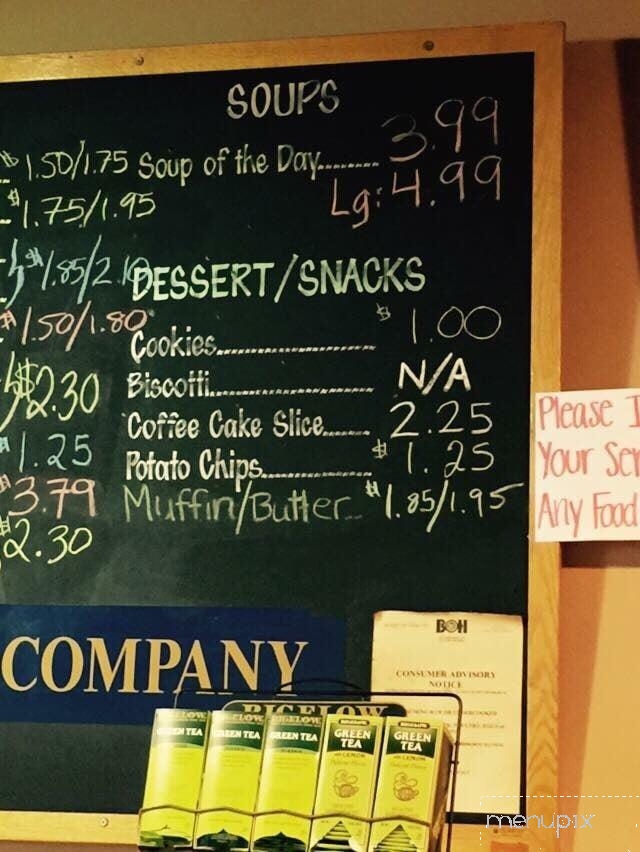 SOUPS
$1.50/1.75 Soup of the Day........ 3.99
$1.75/1.95 Lg: 4.99
$1.85/2.10 DESSERT/SNACKS
$1.50/1.80 Cookies........ $1.00
$2.30 Biscotti........ N/A
Coffee Cake Slice..... 2.25
$1.25 Potato Chips........ $1.25
$3.79 Muffin/Butter... $1.85/1.95
$2.30
Please I
Your Ser
Any Food
COMPANY
BOH
CONSUMER ADVISORY
NOTICE
BIGELOW
BIGELOW BIGELOW BIGELOW BIGELOW BIGELOW
GREEN TEA GREEN TEA GREEN TEA GREEN TEA GREEN TEA
with LEMON
menupix